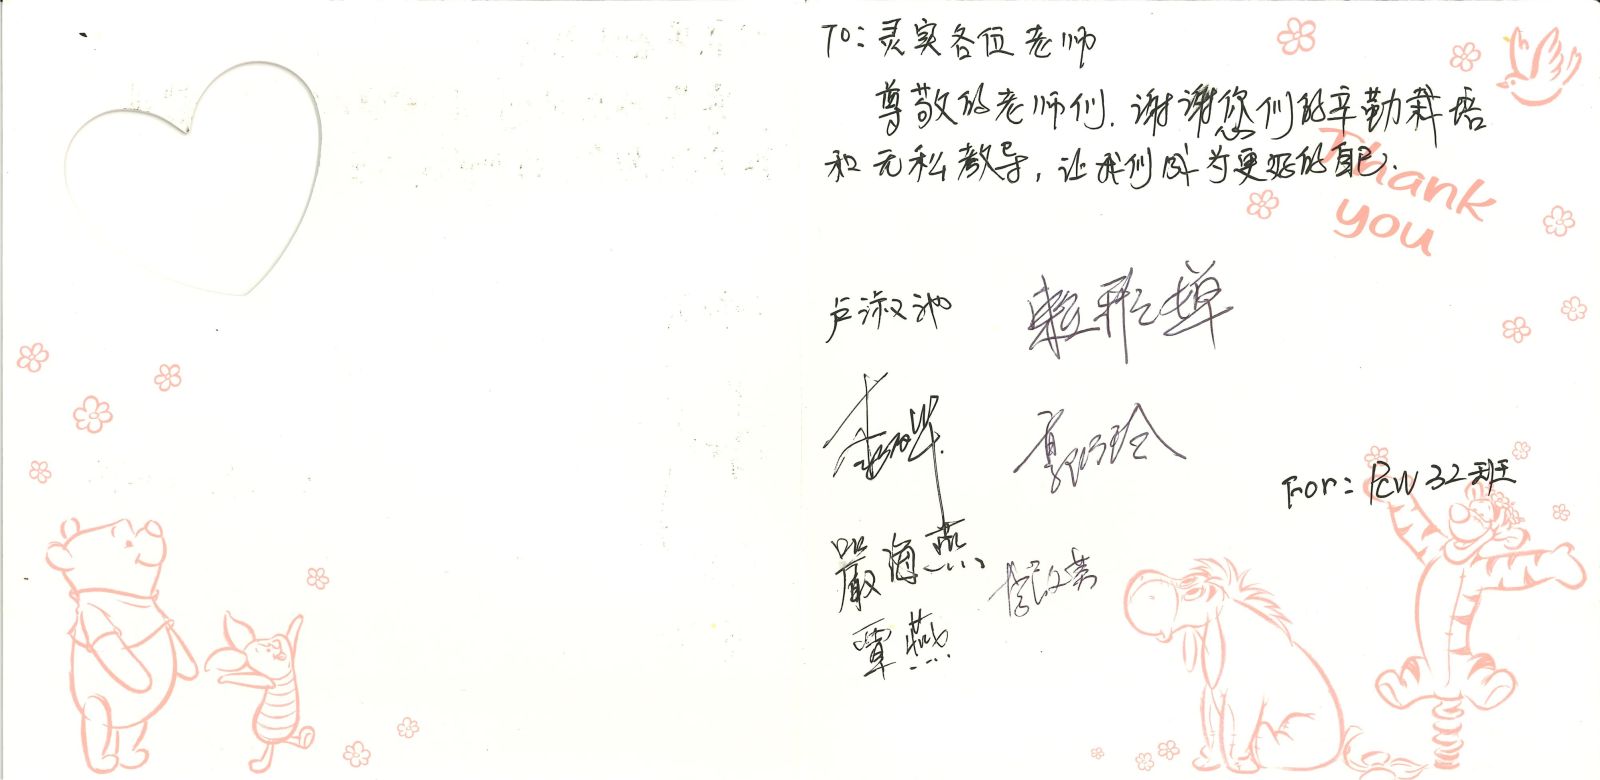 To: 灵实各位老师
尊敬的老师们, 谢谢您们的辛勤栽培
和无私教导, 让我们成为更好的自己.
Thank
you
卢淑池
嚴海燕
覃燕
For: PCW 32班